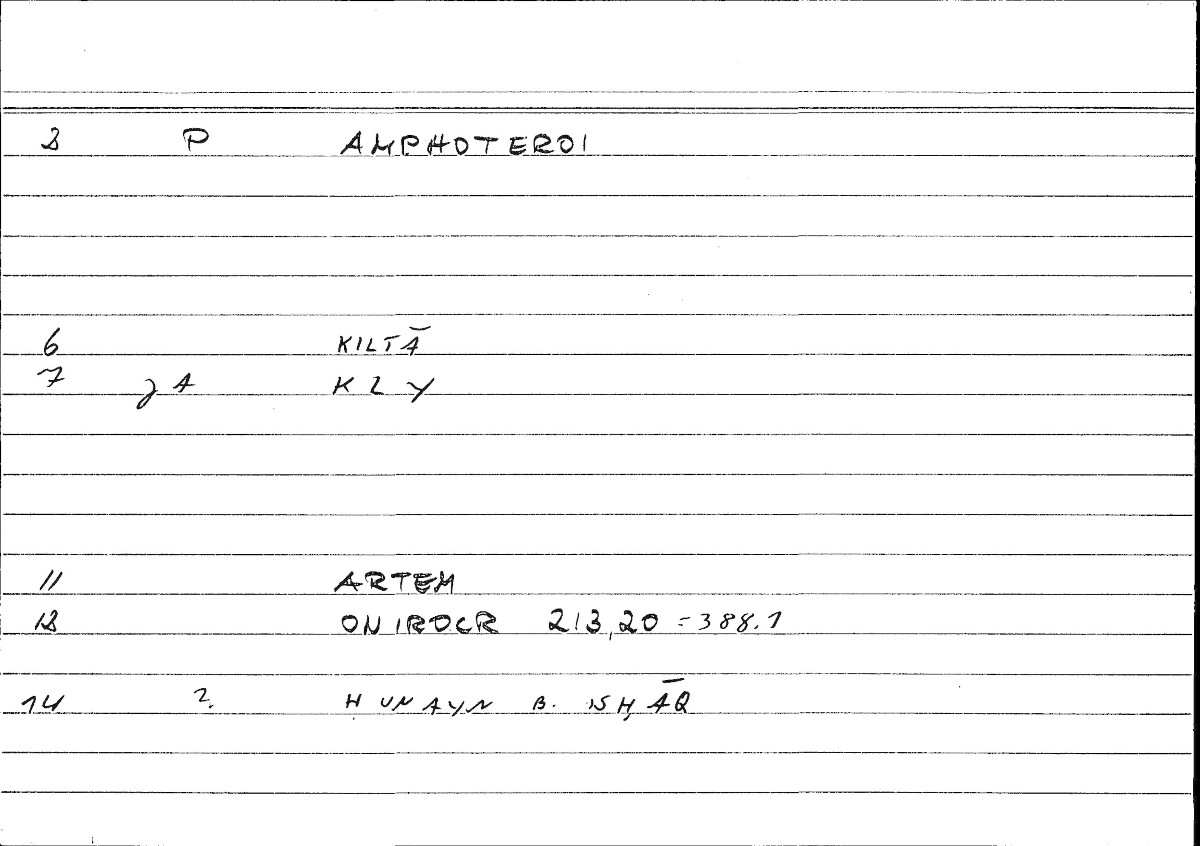 2 P AMPHOTEROI
6 KILTĀ
7 JA KLY
11 ARTEM
12 ONIROCR 213,20 = 388.1
14 ?. ḤUNAYN B. ISḤĀQ